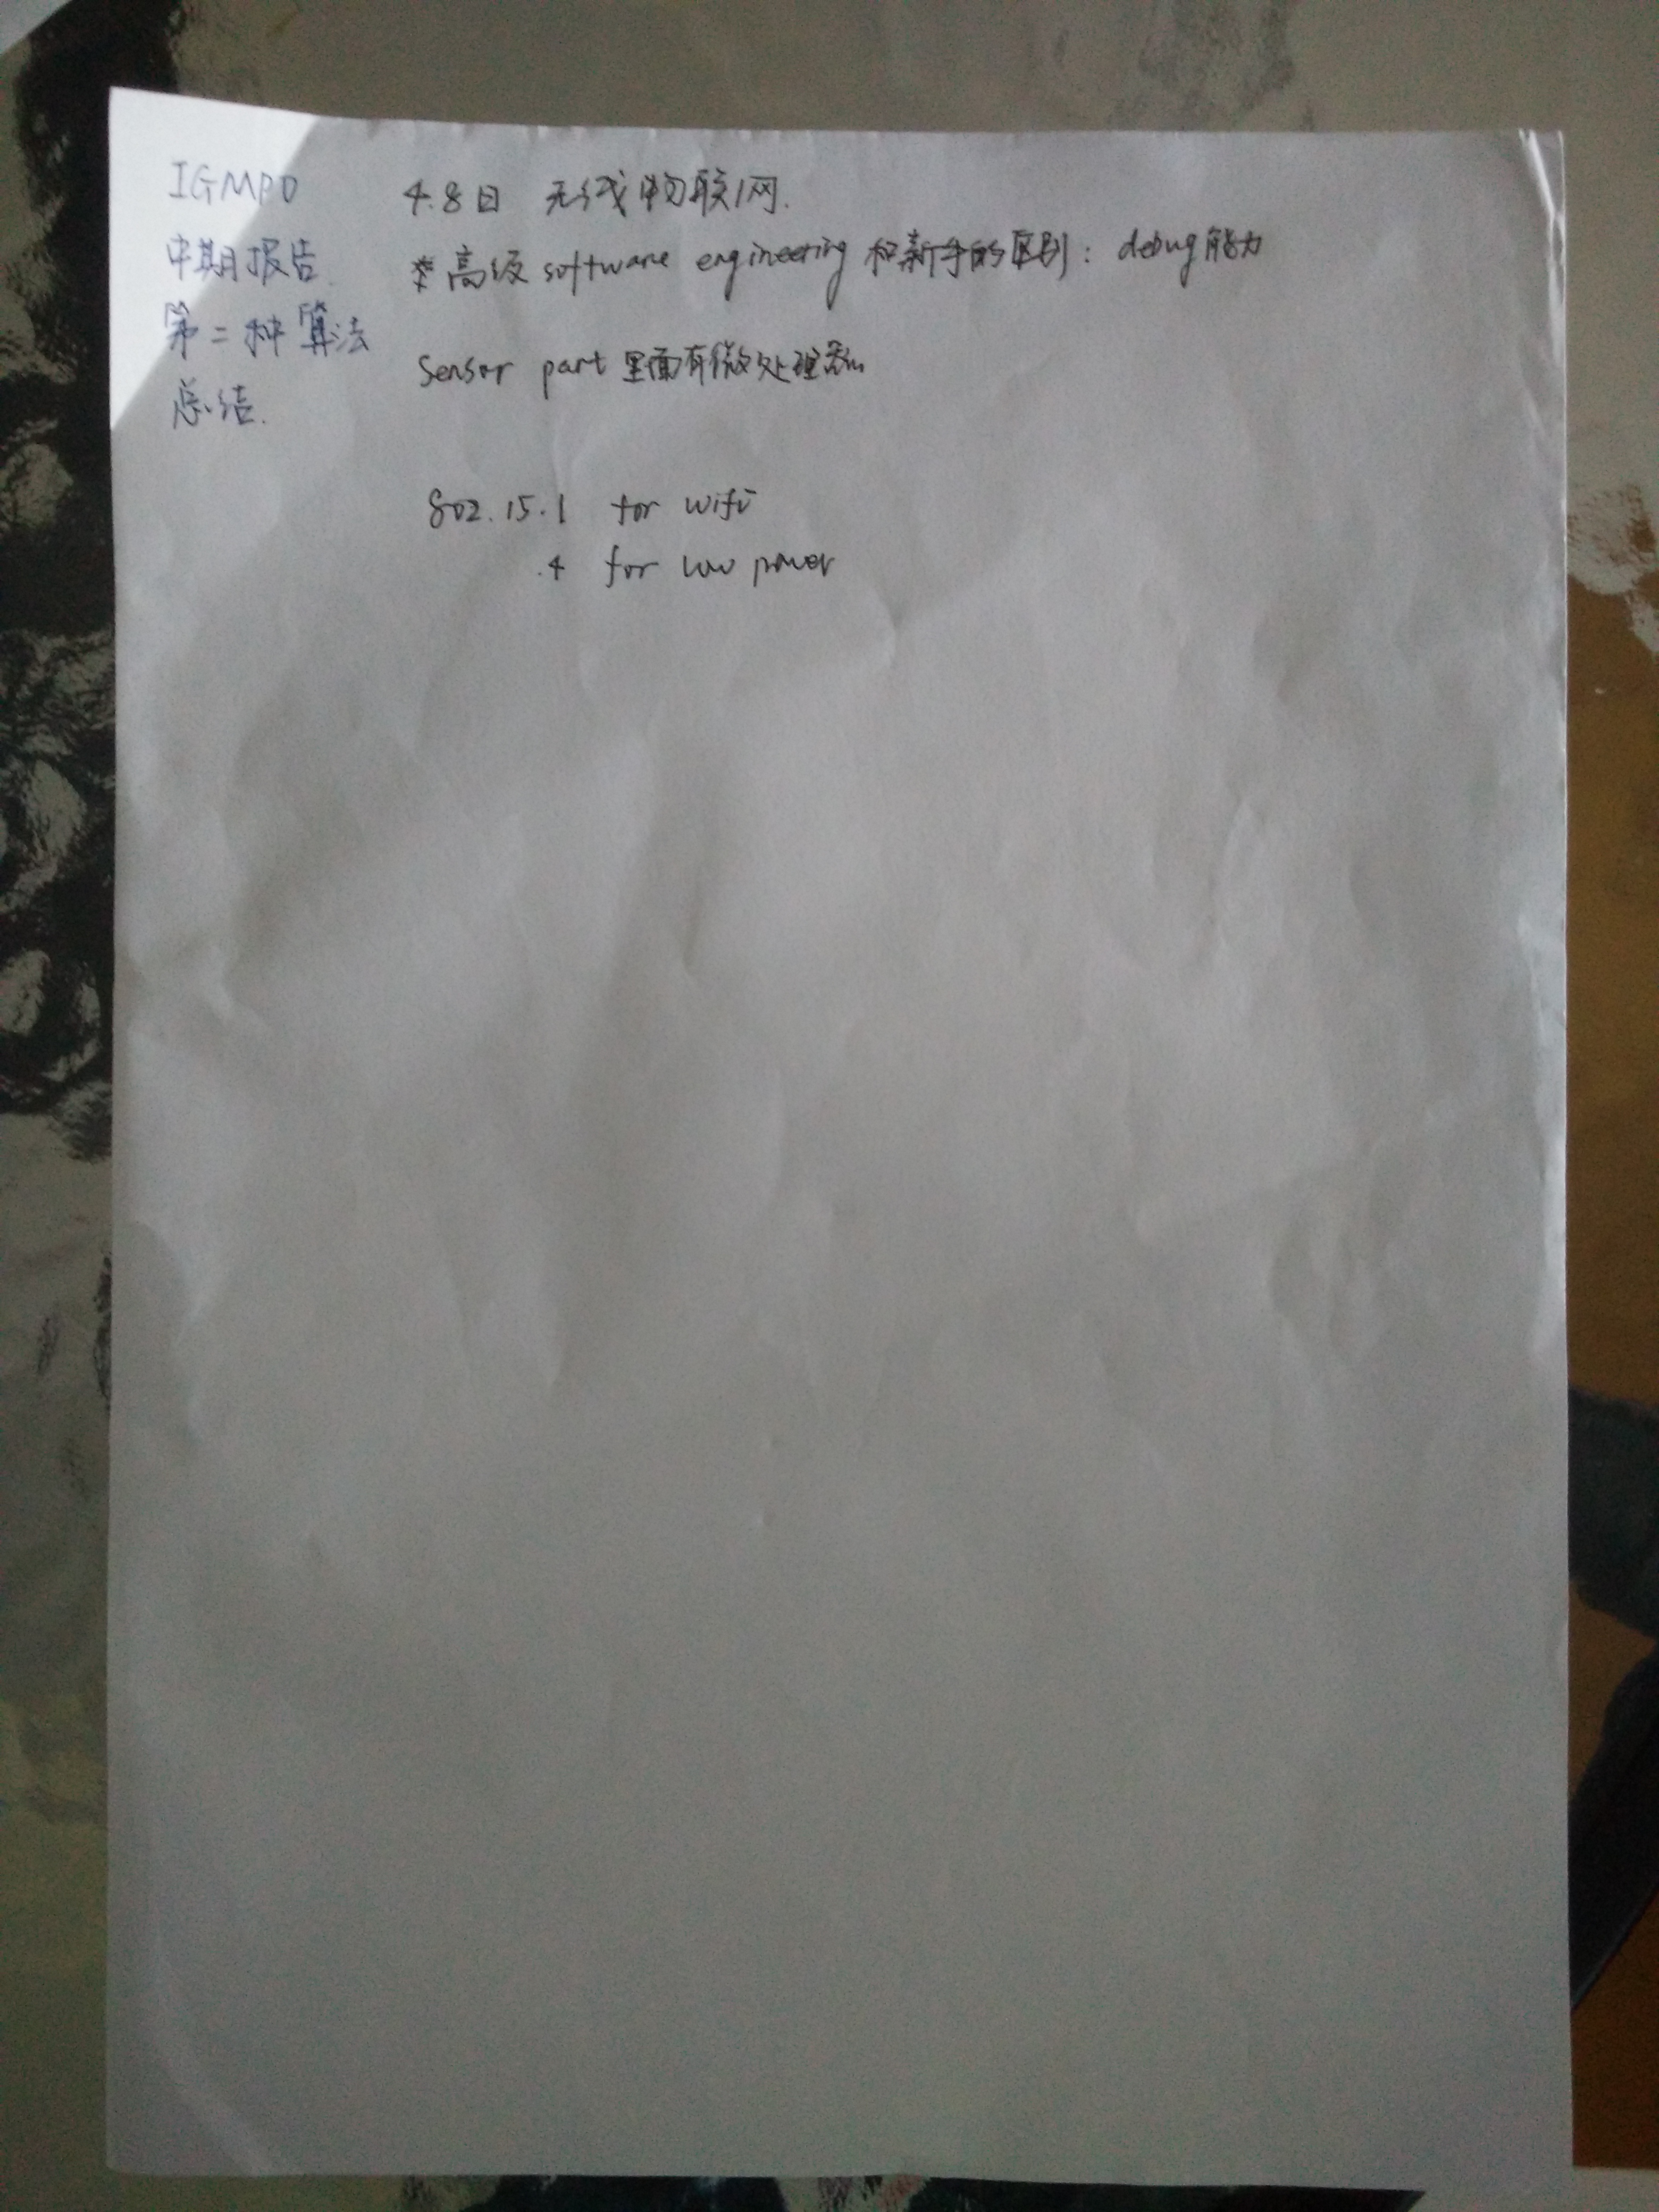 IGMPO
中期报告.
第二种算法
总结.
4.8日 无线物联网.
*高级 software engineering 和新手的区别: debug能力
Sensor part 里面有微处理器
802.15.1 for wifi
.4 for low power